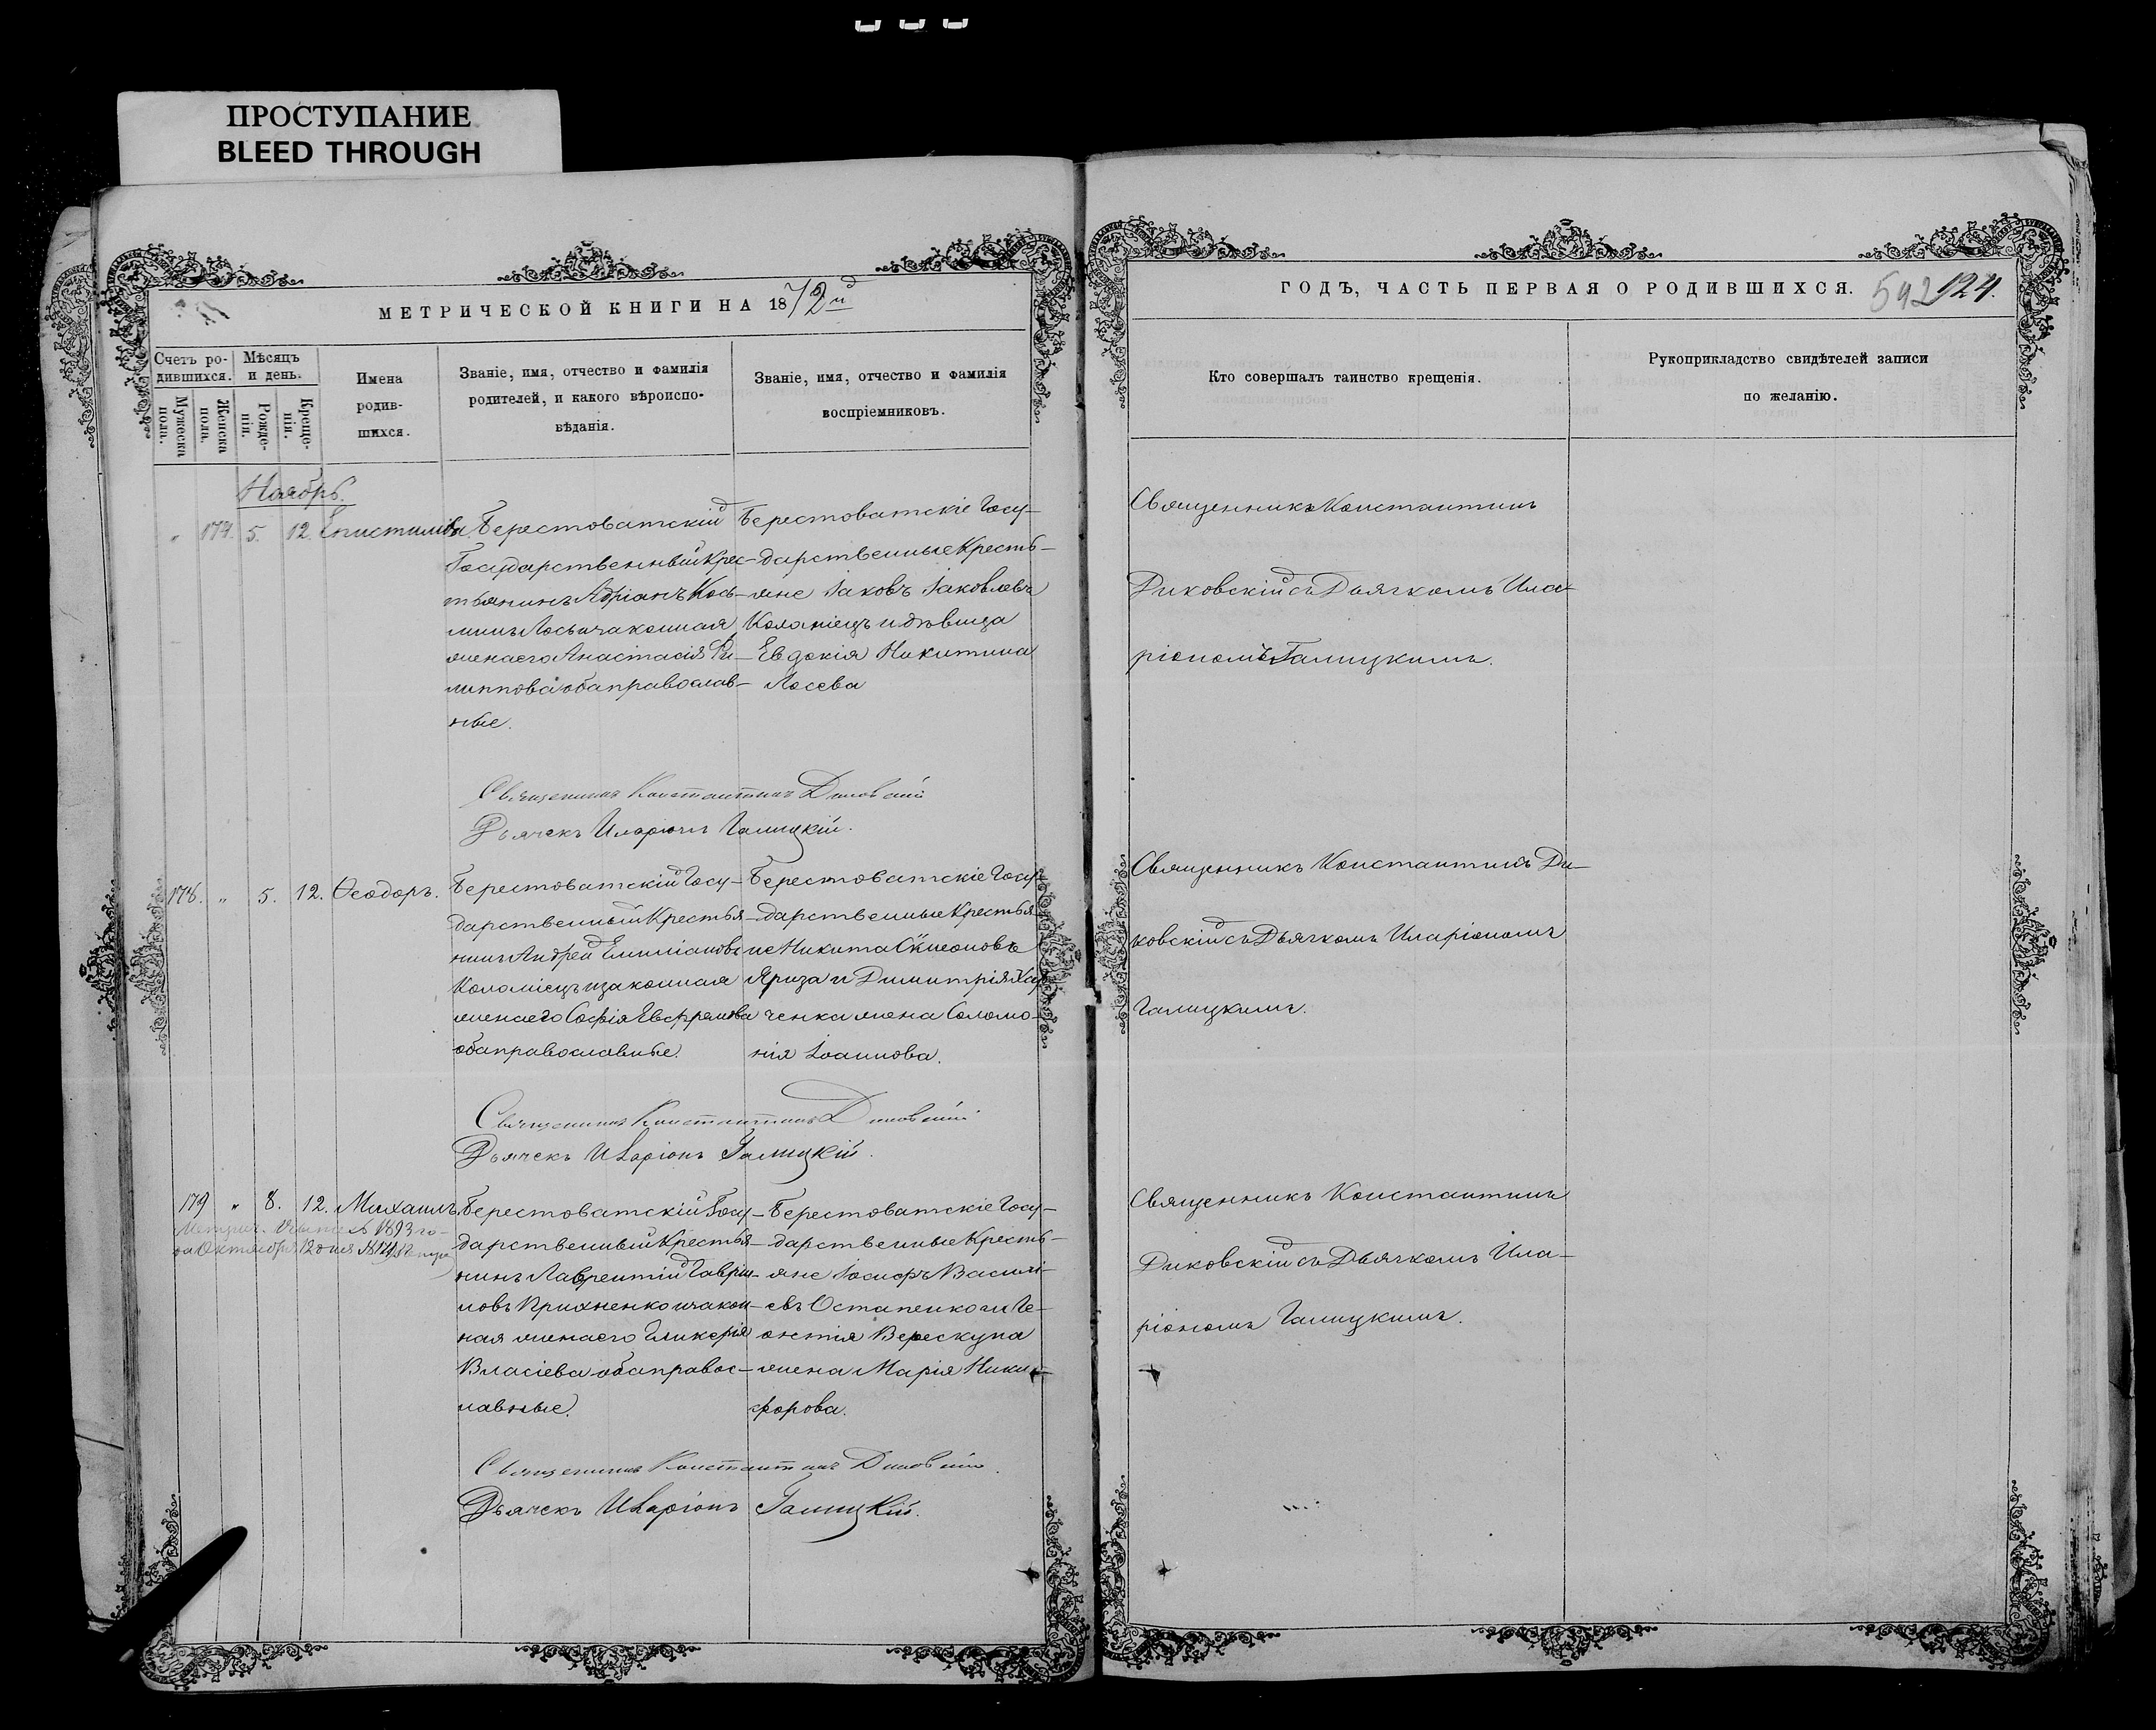 ПРОСТУПАНИЕ
BLEED THROUGH
МЕТРИЧЕСКОЙ КНИГИ НА 1872й
Счетъ ро-
дившихся.
Мужеска
полл.
Женска
полл.
Мѣсяцъ
и день.
Рожде-
нія.
Креще-
нія.
Имена
родив-
шихся.
Званіе, имя, отчество и фамилія
родителей, и какого вѣроиспо-
вѣданія.
Званіе, имя, отчество и фамилія
воспріемниковъ.
Ноябрь.
" 174. 5. 12.
Берестоватскій
Государственный Крес-
тьянинъ Адріанъ Кось-
жена его Анастасія Фи-
липпова оба православ-
ные.
Берестоватскіе Госу-
дарственные Кресть-
яне Іаковъ Іаковлевъ
Коломіецъ и дѣвица
Евдокія Никитина
Лосева
Священникъ Константинъ Диковскій
Дьячекъ Иларіонъ Галицкій.
178. " 5. 12. Ѳеодоръ.
Берестоватскій Госу-
дарственный Крестья-
нинъ Андрей Емиліановъ
Коломіецъ и законная
жена его Софія Евфремова
оба православные.
Берестоватскіе Госу-
дарственные Крестья-
не Никита Сѵмеоновъ
Яриза и Димитрія Хар-
ченка жена Соломо-
нія Іоаннова.
Священникъ Константинъ Диковскій
Дьячекъ Иларіонъ Галицкій.
179 " 8. 12. Михаилъ.
1893 го-
да Октября 12 дня №
Берестоватскій Госу-
дарственный Крестья-
нинъ Лаврентій Гаврии-
ловъ Прихненко и закон-
ная жена его Гликерія
Власіева оба правос-
лавные.
Берестоватскіе Госу-
дарственные Кресть-
яне Іосифъ Василі-
евъ Остапенко и Ге-
онтія Верескуна
жена Марія Ники-
форова.
Священникъ Константинъ Диковскій.
Дьячекъ Иларіонъ Галицкій.
ГОДЪ, ЧАСТЬ ПЕРВАЯ О РОДИВШИХСЯ.
592 124.
Кто совершалъ таинство крещенія.
Рукоприкладство свидѣтелей записи
по желанію.
Священникъ Константинъ
Диковскій съ Дьячкомъ Ила-
ріономъ Галицкимъ.
Священникъ Константинъ Ди-
ковскій съ Дьячкомъ Иларіономъ
Галицкимъ.
Священникъ Константинъ
Диковскій съ Дьячкомъ Ила-
ріономъ Галицкимъ.